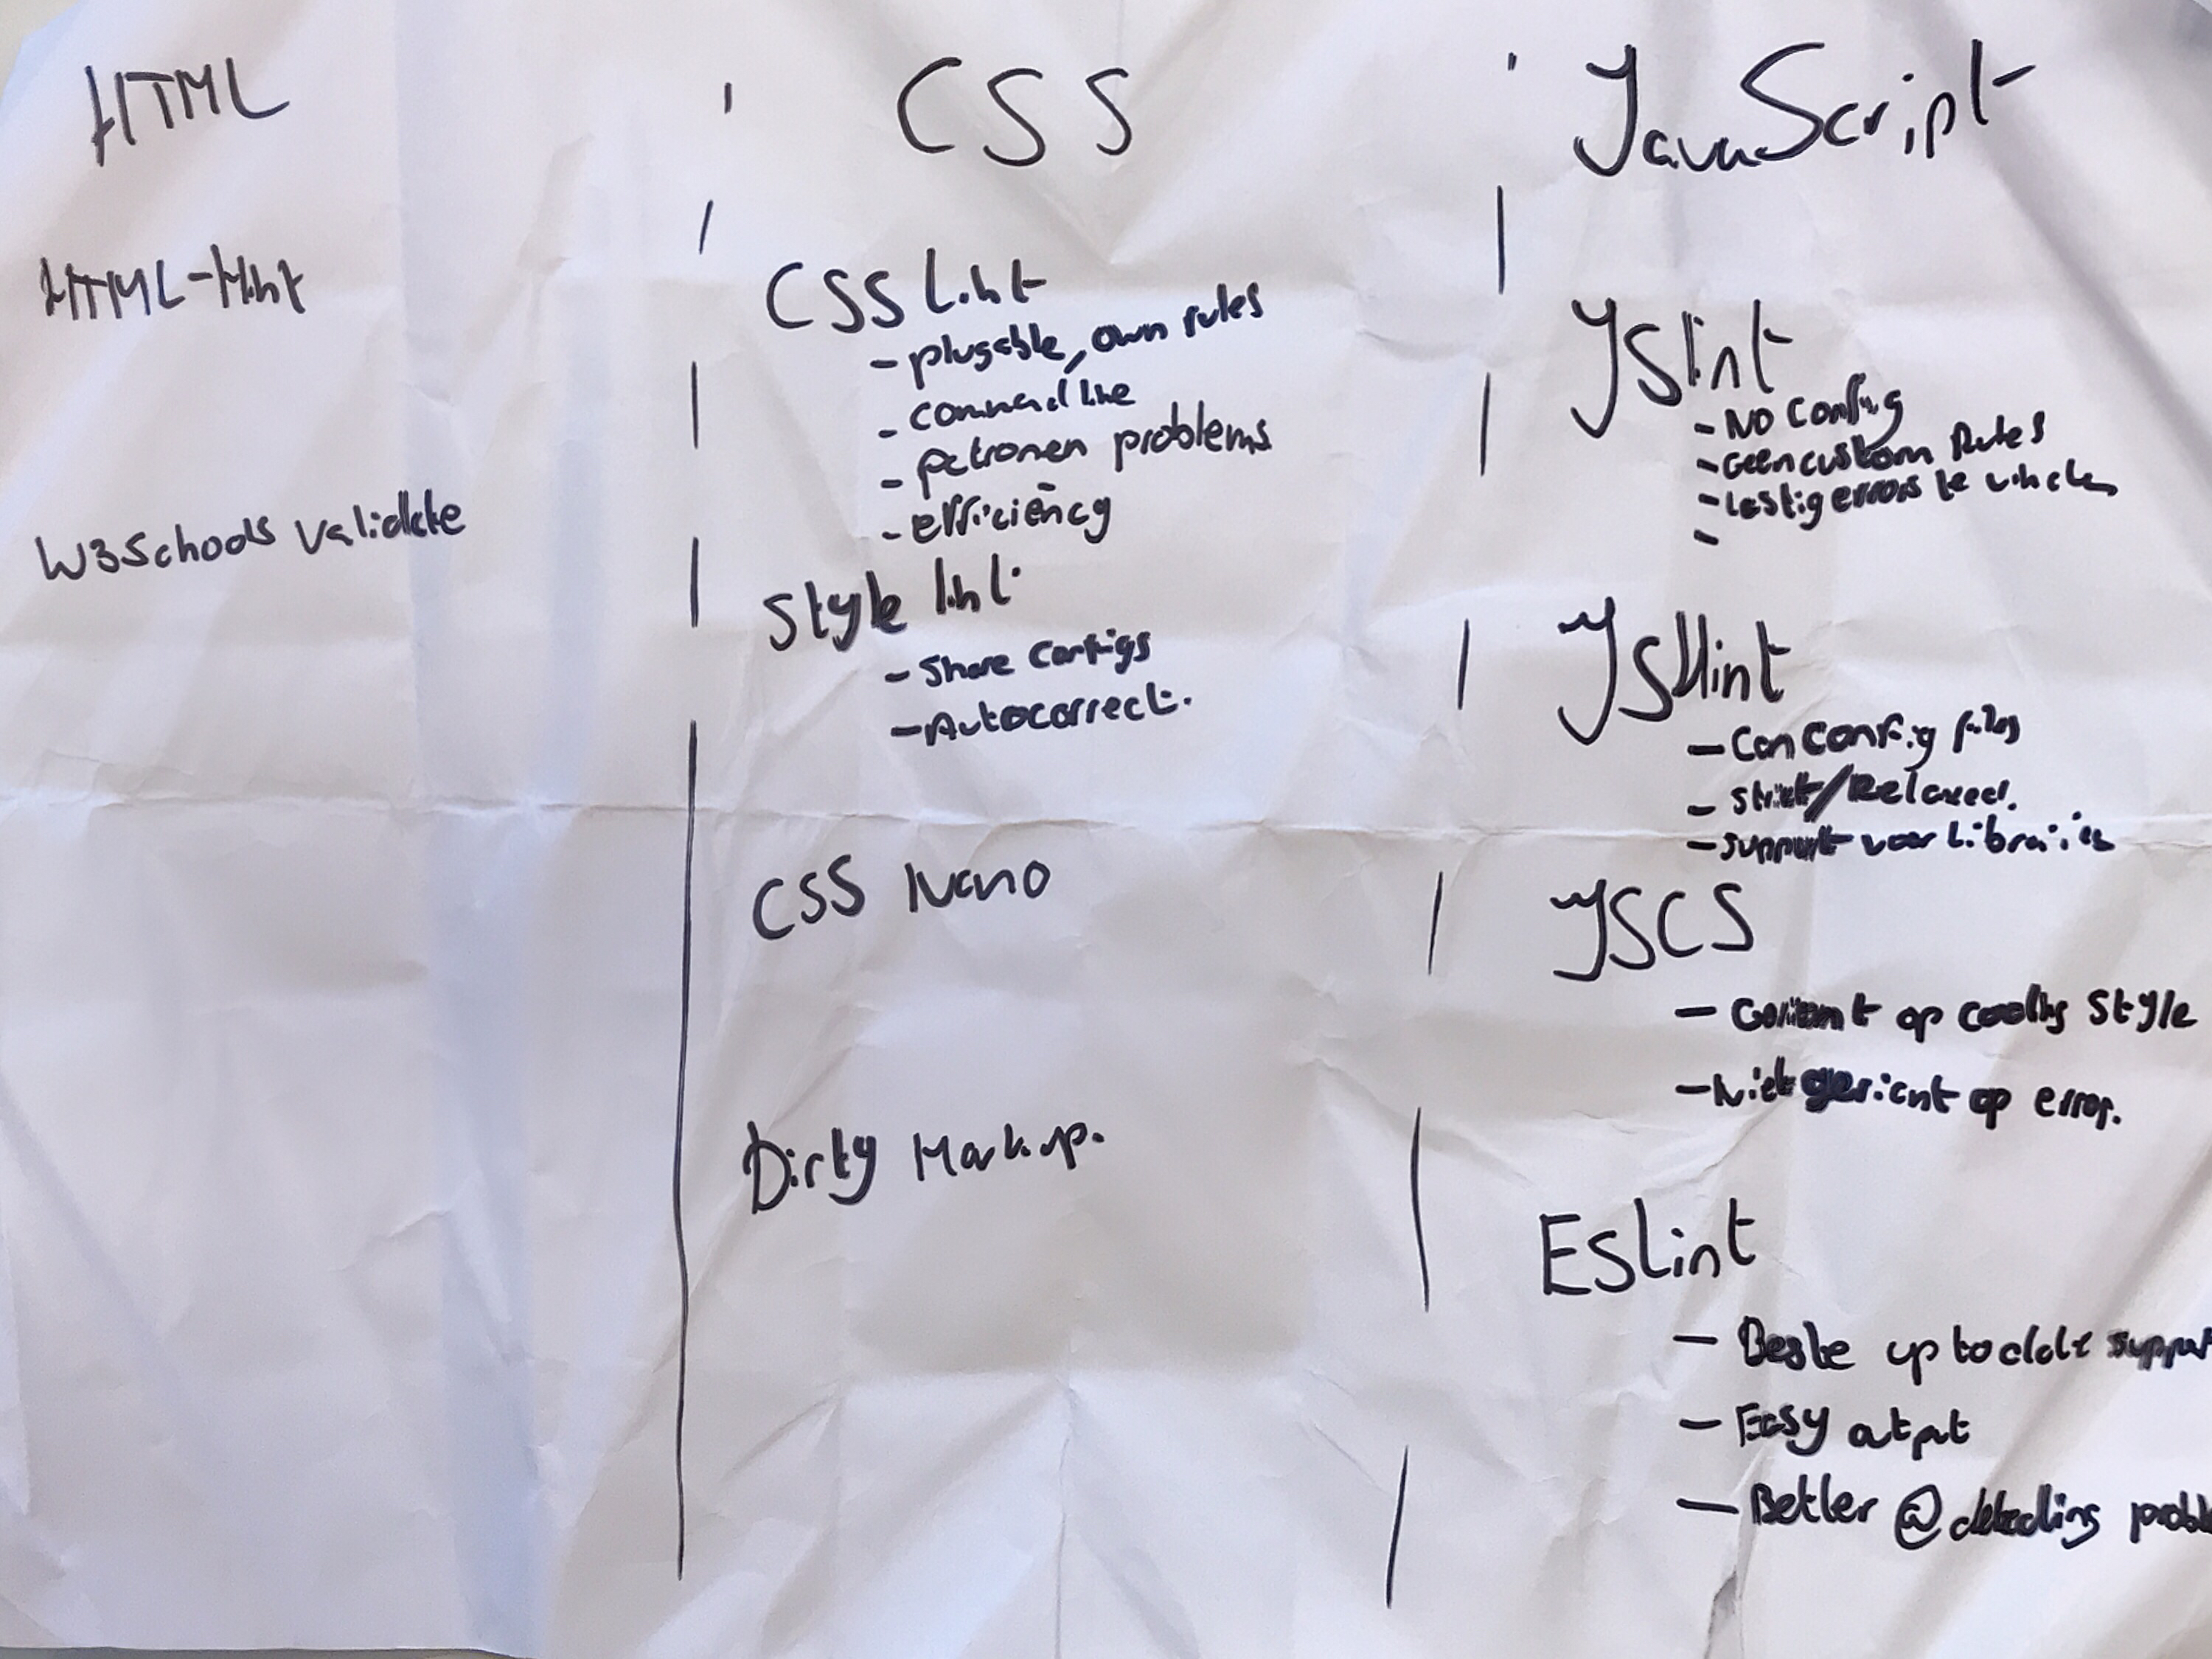 HTML
HTML-Hint
W3Schools Validate
CSS
CSS Lint
- plugable, own rules
- command line
- patronen problems
- efficiëncy
Style lint
- Share Configs
- Autocorrect.
CSS Nano
Dirty Markup.
JavaScript
JSlint
- NO Config
- Geen custom Rules
- Lastig errors te vinden
-
JSHint
- Can Config files
- Strict/Relaxed.
- Support voor Libraries
JSCS
- op coding Style
- Niet gericht op error.
ESLint
- Beste up to date suppor
- Easy output
- Better @ detecting proble